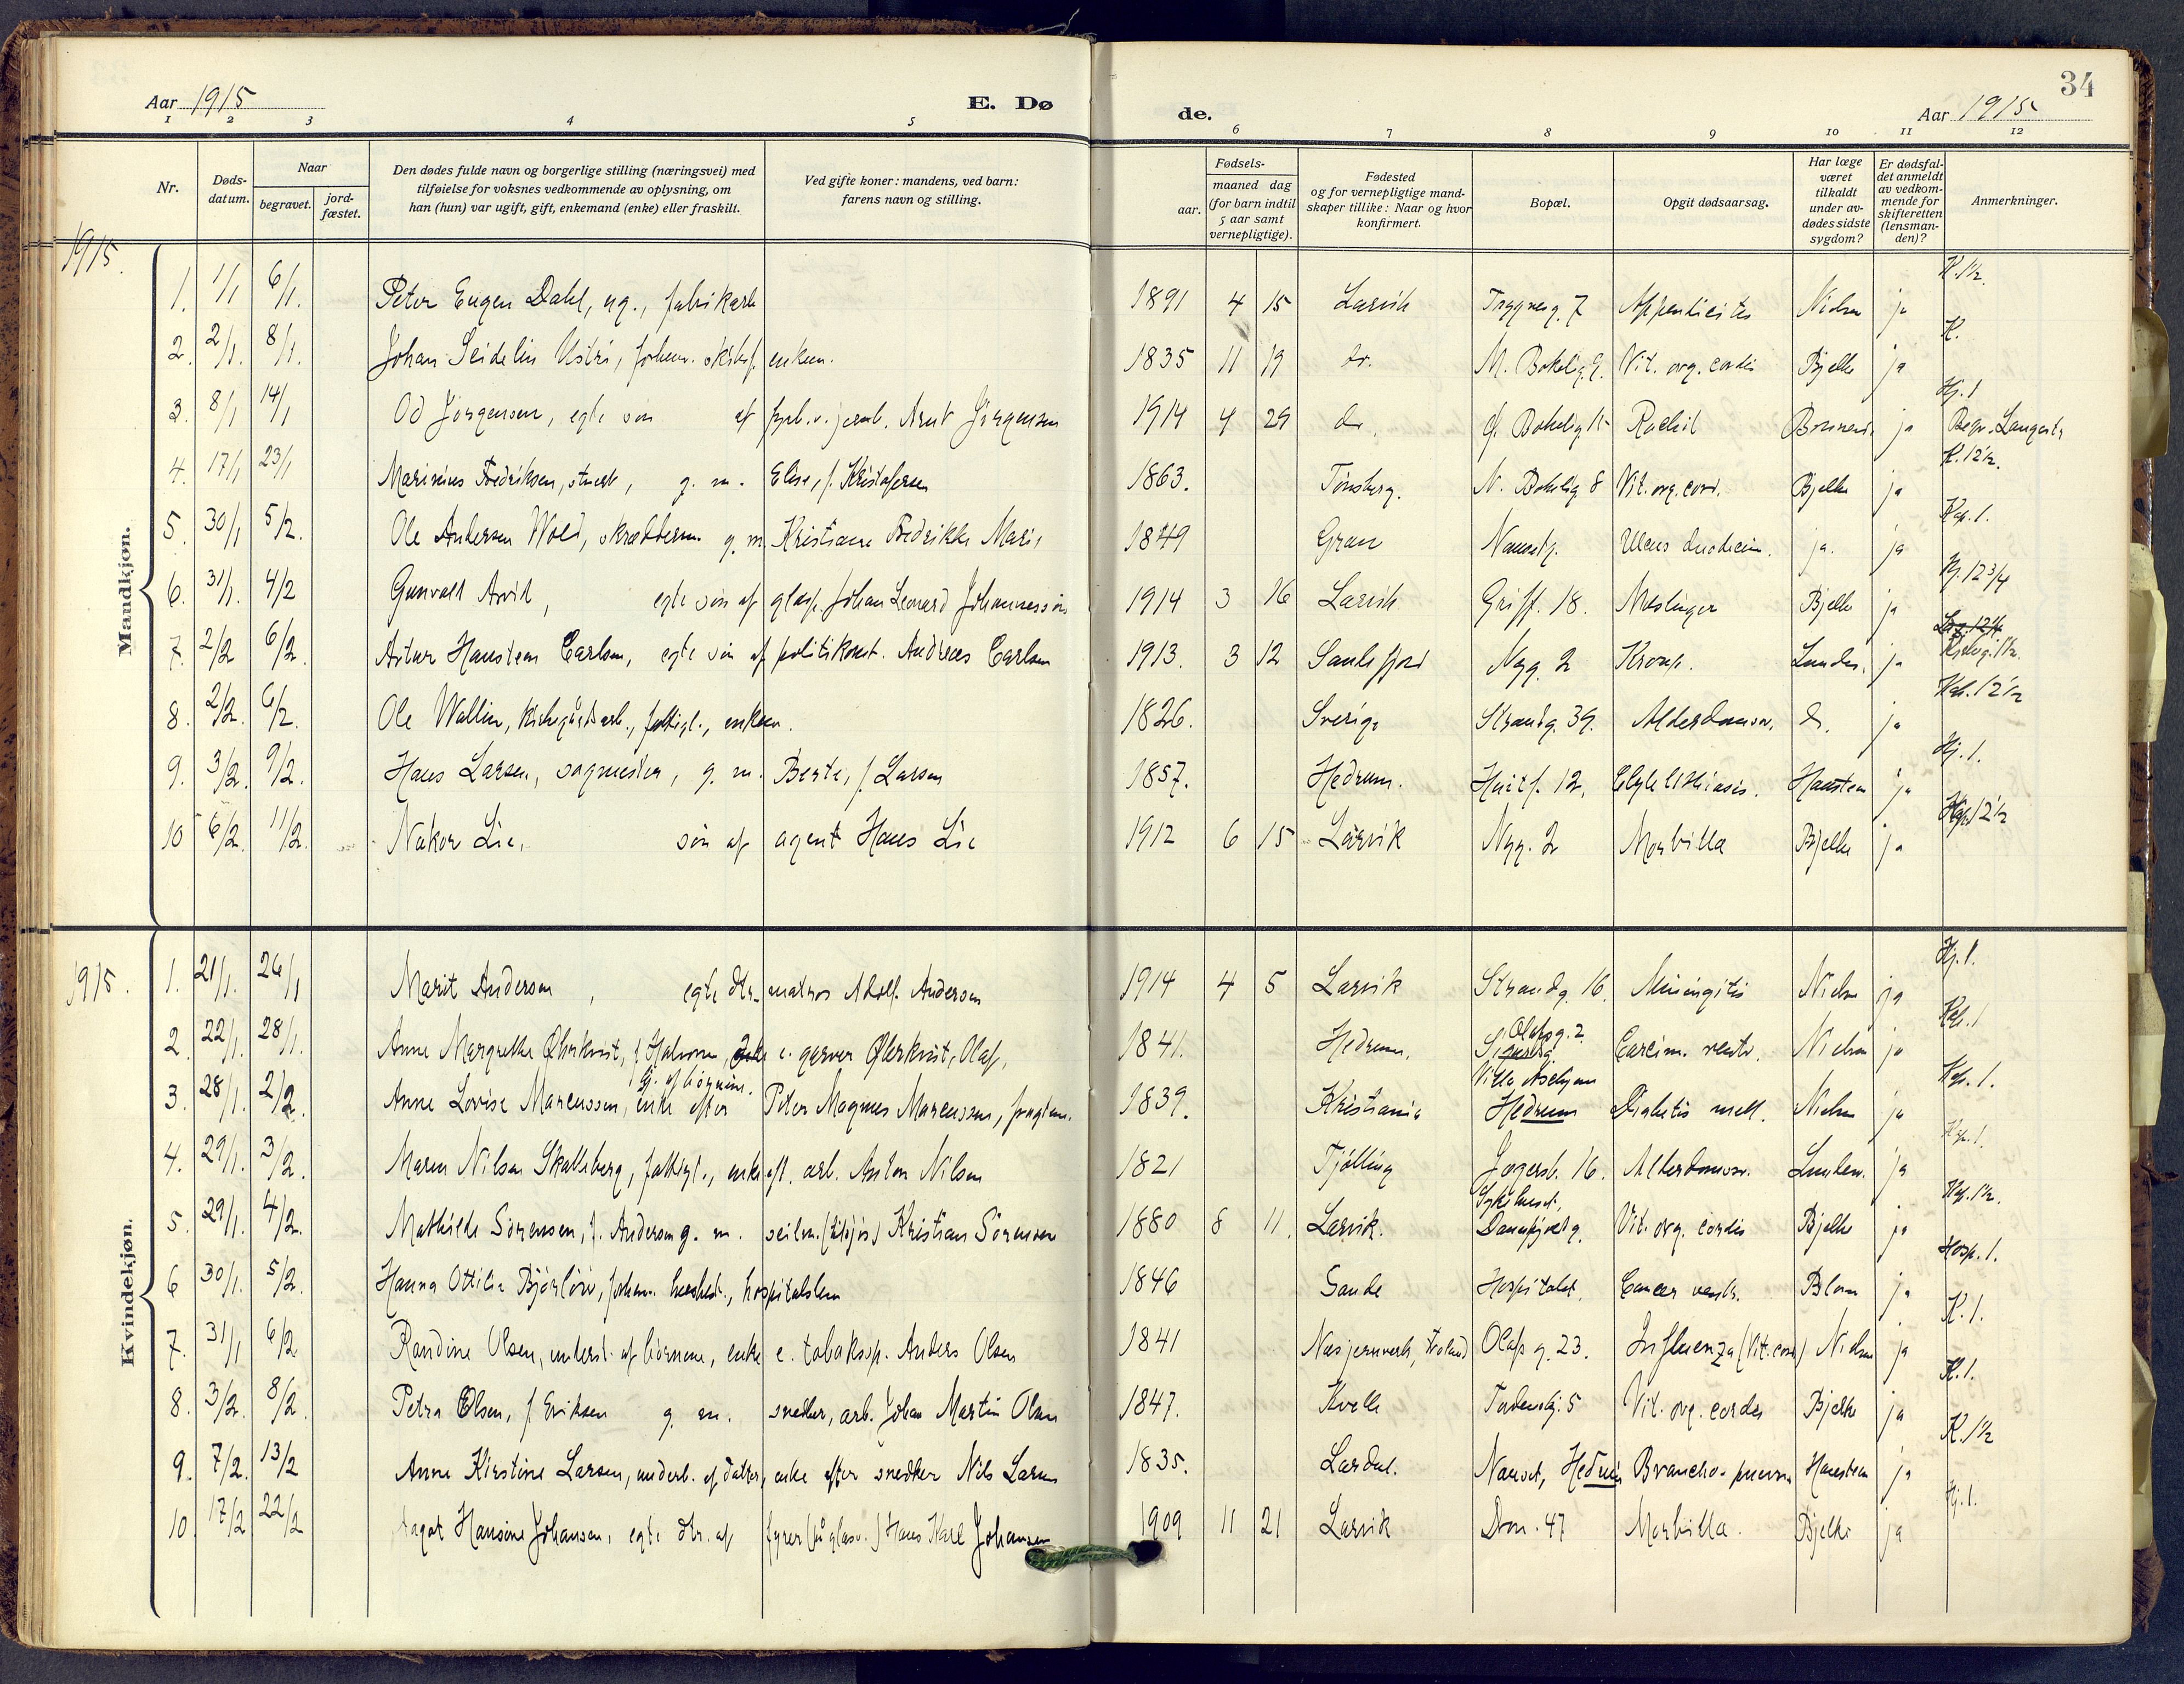 34
Aar 1915
E. Dø
de.
Aar 1915
1 2 3 4 5 6 7 8 9 10 11 12
Nr.
Døds-
datum.
Naar
begravet.
jord-
fæstet.
Den dødes fulde navn og borgerlige stilling (næringsvei) med
tilføielse for voksnes vedkommende av oplysning, om
han (hun) var ugift, gift, enkemand (enke) eller fraskilt.
Ved gifte koner: mandens, ved barn:
farens navn og stilling.
Fødsels-
aar.
maaned dag
(for barn indtil
5 aar samt
vernepligtige).
Fødested
og for vernepligtige mand-
skaper tillike: Naar og hvor
konfirmert.
Bopæl.
Opgit dødsaarsag.
Har læge
været
tilkaldt
under av-
dødes sidste
sygdom?
Er dødsfal-
det anmeldt
av vedkom-
mende for
skifteretten
(lensman-
den)?
Anmerkninger.
1915.
Mandkjøn.
1. 1/1 6/1. Peter Eugen Dahl, ug., fabrikarb 1891 4 15 Larvik Tryggveg. 7 Appendicites Nielsen ja K. 1½.
2. 2/1. 8/1. Johan Seidelin Ustri, forhenv. enkem. 1835 11 19 do. M. Bøkelig. 9. Vit. org. cordis Bjelke ja K.
3. 8/1 14/1 Od Jörgensen, egte sön af Arnt Jörgensen 1914 4 29 do. Bøkelig 11 Rachit ja Hj. 1
4. 17/1 23/1 Marinius Fredriksen, stuert, g. m. Elise, f. Kristofersen 1863. Tönsberg. N. Bøkelig 8 Vit. org. cord. Bjelke ja K. 12½.
5. 30/1 5/2. Ole Andersen Wold, skrædderm. g. m. Kristiane Fredrikke Marie 1849 Gran Nansetg. Ulcus duodeni. ja. ja Kap. 1.
6. 31/1. 4/2 Gunvald Arvid, egte sön af glasp. Johan Leonard Johannessön 1914 3 16 Larvik Griff. 18. Meslinger Bjelke ja Hj. 12 3/4
7. 2/2 6/2. Artur Hanstein Carlsen, egte sön af politikonst. Andreas Carlsen 1913. 3 12 Sandefjord Nyg. 2 Kroup. Lunden. ja
8. 2/2. 6/2. Ole Wallin, kirkegårdsarb., fattigl., enkem. 1826. Sverige Strandg. 39. Alderdomssv. do. ja Kap. 12½
9. 3/2. 9/2. Hans Larsen, sagmester, g. m. Berte, f. Larsen 1857. Hedrum. Huitf. 12. Hanstein ja Hj. 1.
10 6/2. 11/2. Nakor Lie, sön af agent Hans Lie 1912 6 15 Larvik Nyg. 2 Morbilla Bjelke ja Kap. 12½
1915.
Kvindekjøn.
1. 21/1. 26/1 Marit Andersen, egte dtr. matros Adolf Andersen 1914 4 5 Larvik Strandg. 16. Meningitis Nielsen ja Hj. 1.
2. 22/1. 28/1. Anne Margrethe Öhrkvist, f. Halvorsen, enke e. garver Öhrkvist, Olaf, 1841. Hedrum. Olafsg. 2 Carcim. ventr. Nielsen ja Kap. 1
3. 28/1. 2/2. Anne Lovise Marcussen, enke efter Peter Magnus Marcussen, 1839. Kristiania Hedrum Diabetis mell. Nielsen ja Kap. 1.
4. 29/1. 3/2. Maren Nilsen Skallsberg, fattigl., enke eft. arb. Anton Nilsen 1821 Tjölling Jegersb. 16. Alderdomssv. Lunden. ja Kap. 1.
5. 29/1. 4/2. Mathilde Sörensen, f. Andersen g. m. Kristian Sörensen 1880 8 11. Larvik. Sykehuset, Vit. org. cordis Bjelke ja Kap. 1½.
6 30/1. 5/2. Hanna Ottilie Björlöw, hospitalslem 1846 Sande Hospitalet. Cancer ventr. Blom ja Hosp. 1.
7. 31/1 6/2 Randine Olsen, underst. af börnene, enke e. tobaksp. Anders Olsen 1841 Næsjernverk, Holand Olafs g. 23. Influenza (Vit. cord) Nielsen ja K. 1.
8. 3/2. 8/2. Petra Olsen, f. Eriksen g. m. snedker, arb. Johan Martin Olsen 1847. Kvelle Tordenskj. 5 Vit. org. cordes Bjelke ja K. 1.
9. 7/2. 13/2 Anne Kirstine Larsen, underh. af datter, enke efter snedker Nils Larsen 1835. Lardal. Nanset, Hedrum Hanstein ja K. 1½
10. 17/2 22/2 Dagot Hansine Johansen, egte dtr. af fyrer (på glasv.) Hans Karl Johansen 1909 11 21 Larvik Dron. 47 Morbilla. Bjelke ja Hj. 1.